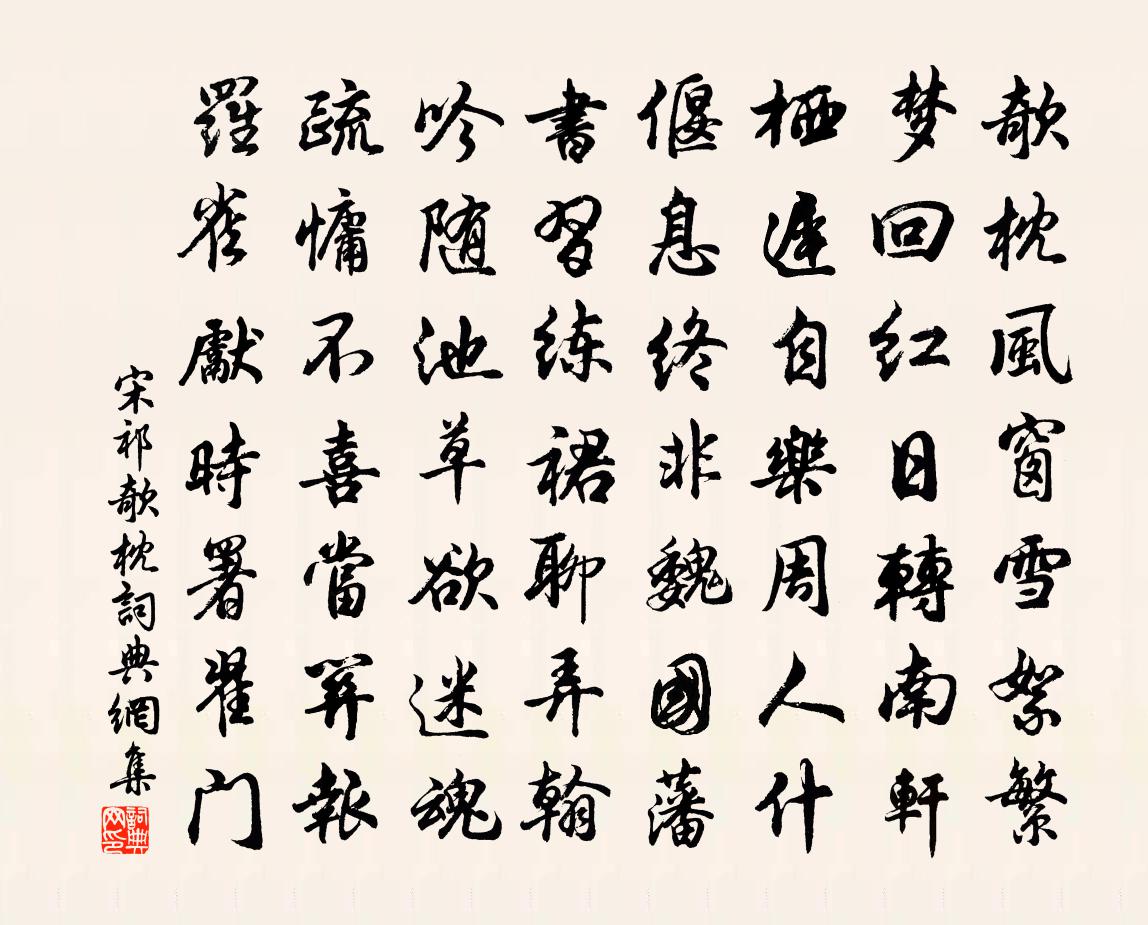 欹枕風窗雪絮繁
梦回红日轉南軒
栖遲自樂周人什
偃息终非魏國藩
書習练裙聊弄翰
吟随池草欲迷魂
疏慵不喜當笄報
羅雀獻時署翟门
宋祁欹枕詞典網集
詞典网印